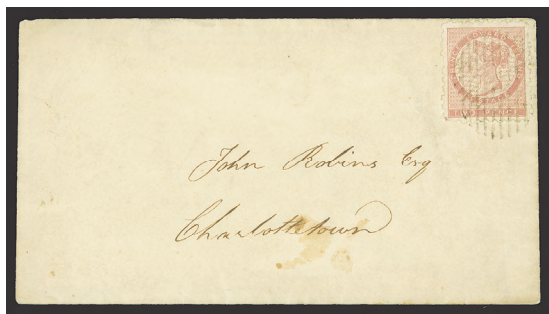 John Robins Esq
Charlottetown